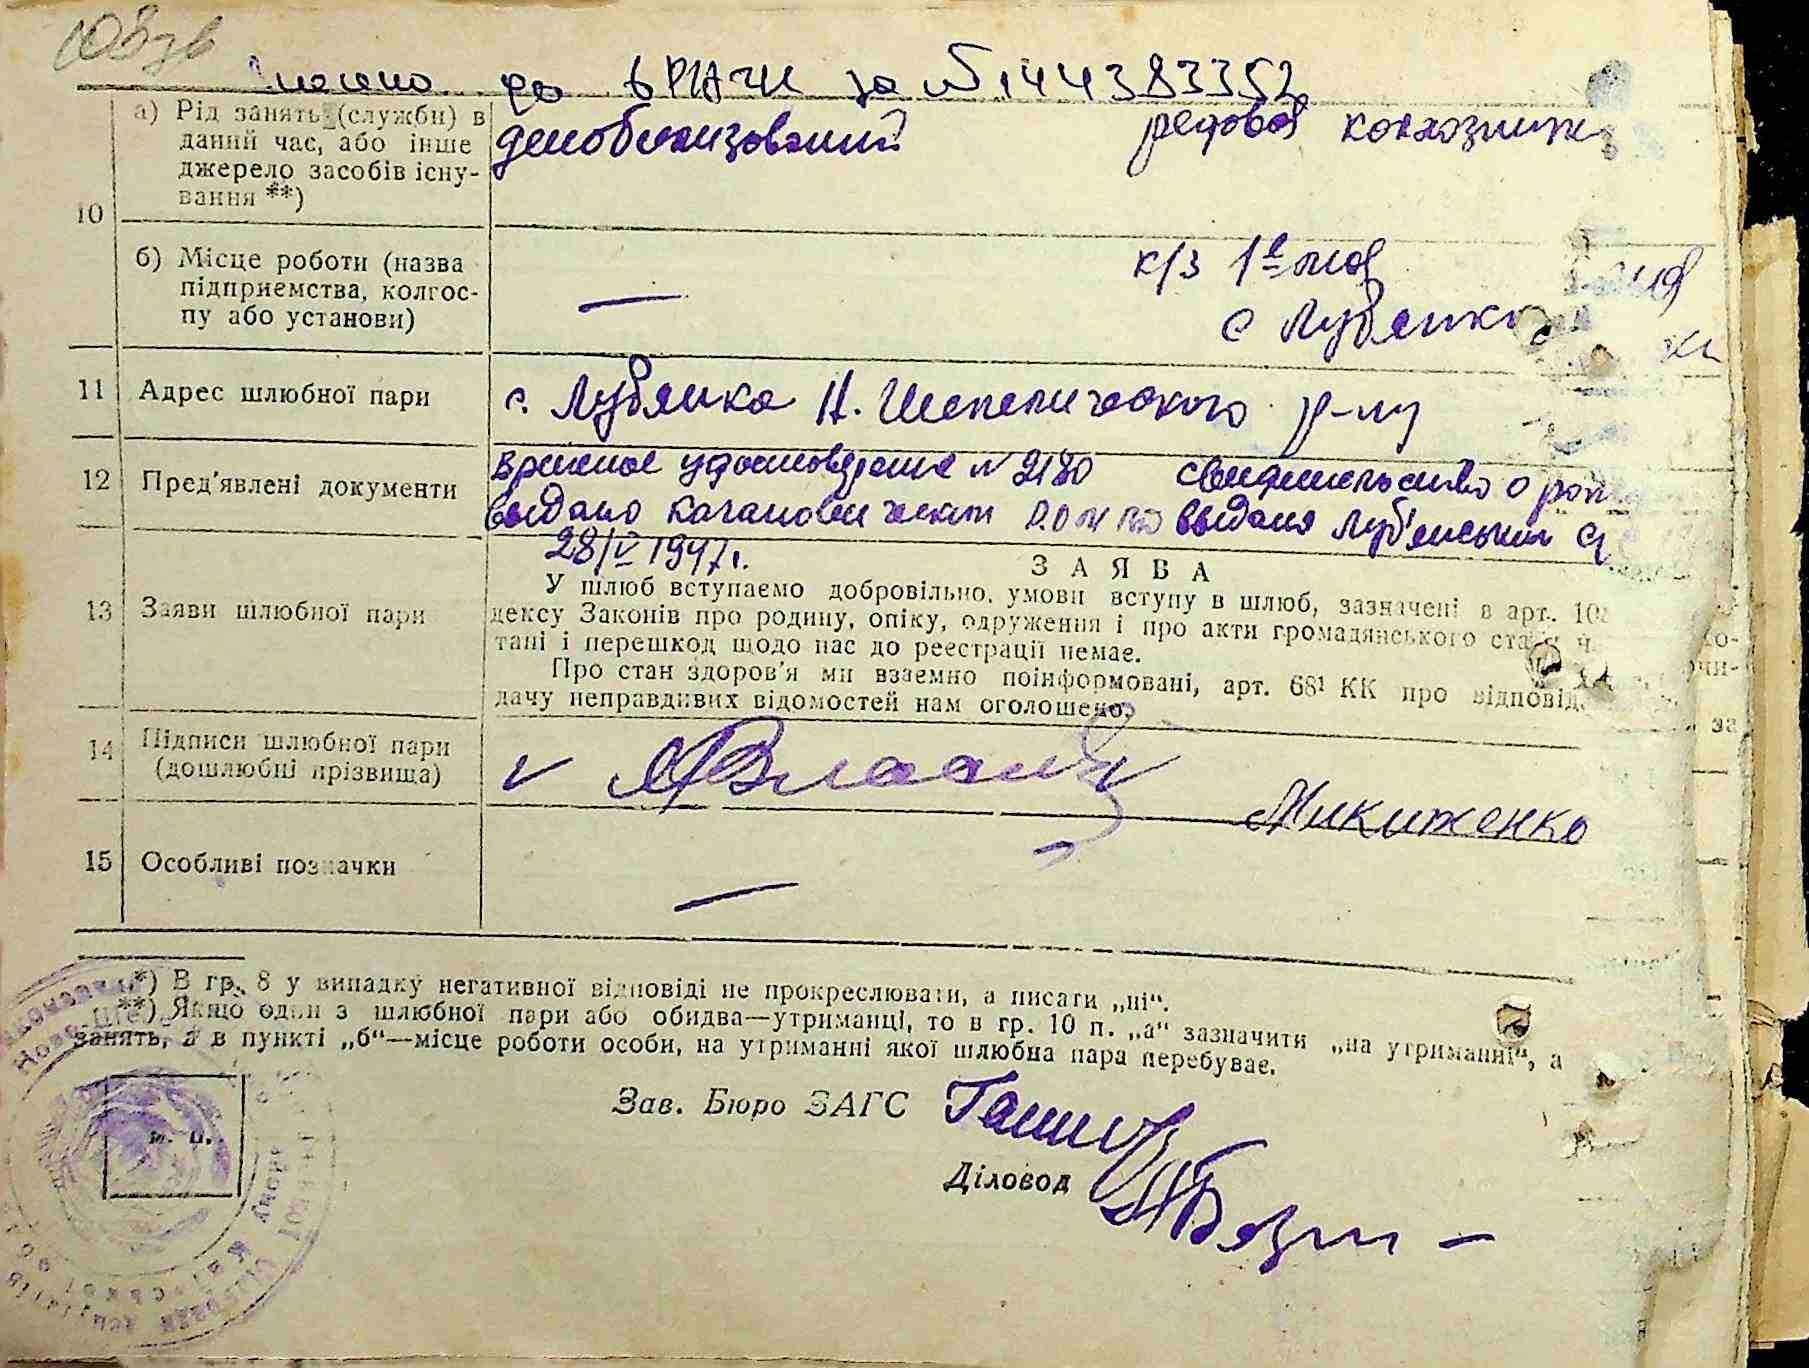 108зв
внесено до ДРАЦС за №144383352
10
а) Рід занять (служби) в даний час, або інше джерело засобів існування **)
демобилизований
редовой колхозник
б) Місце роботи (назва підприємства, колгоспу або установи)
—
к/з 1е мая
с Лубянка
11 Адрес шлюбної пари
с. Лубянка Н. Шепеличского р-ну
12 Пред'явлені документи
временое удостоверение №2180
выдано Кагановическим
28/V 1947г.
свидительство о рожд
выданя Луб'янським
13 Заяви шлюбної пари
ЗАЯВА
У шлюб вступаємо добровільно, умови вступу в шлюб, зазначені в арт.
дексу Законів про родину, опіку, одруження і про акти громадянського
тані і перешкод щодо нас до реєстрації немає.
Про стан здоров'я ми взаємно поінформовані, арт. 68¹ КК про відповід
дачу неправдивих відомостей нам оголошено.
14 Підписи шлюбної пари (дошлюбні прізвища)
Микиженко
15 Особливі позначки
—
*) В гр. 8 у випадку негативної відповіді не прокреслювати, а писати „ні“.
**) Якщо один з шлюбної пари або обидва—утриманці, то в гр. 10 п. „а“ зазначити „на утриманні“, а
занять, а в пункті „б“—місце роботи особи, на утриманні якої шлюбна пара перебуває.
Зав. Бюро ЗАГС
Діловод
м. п.